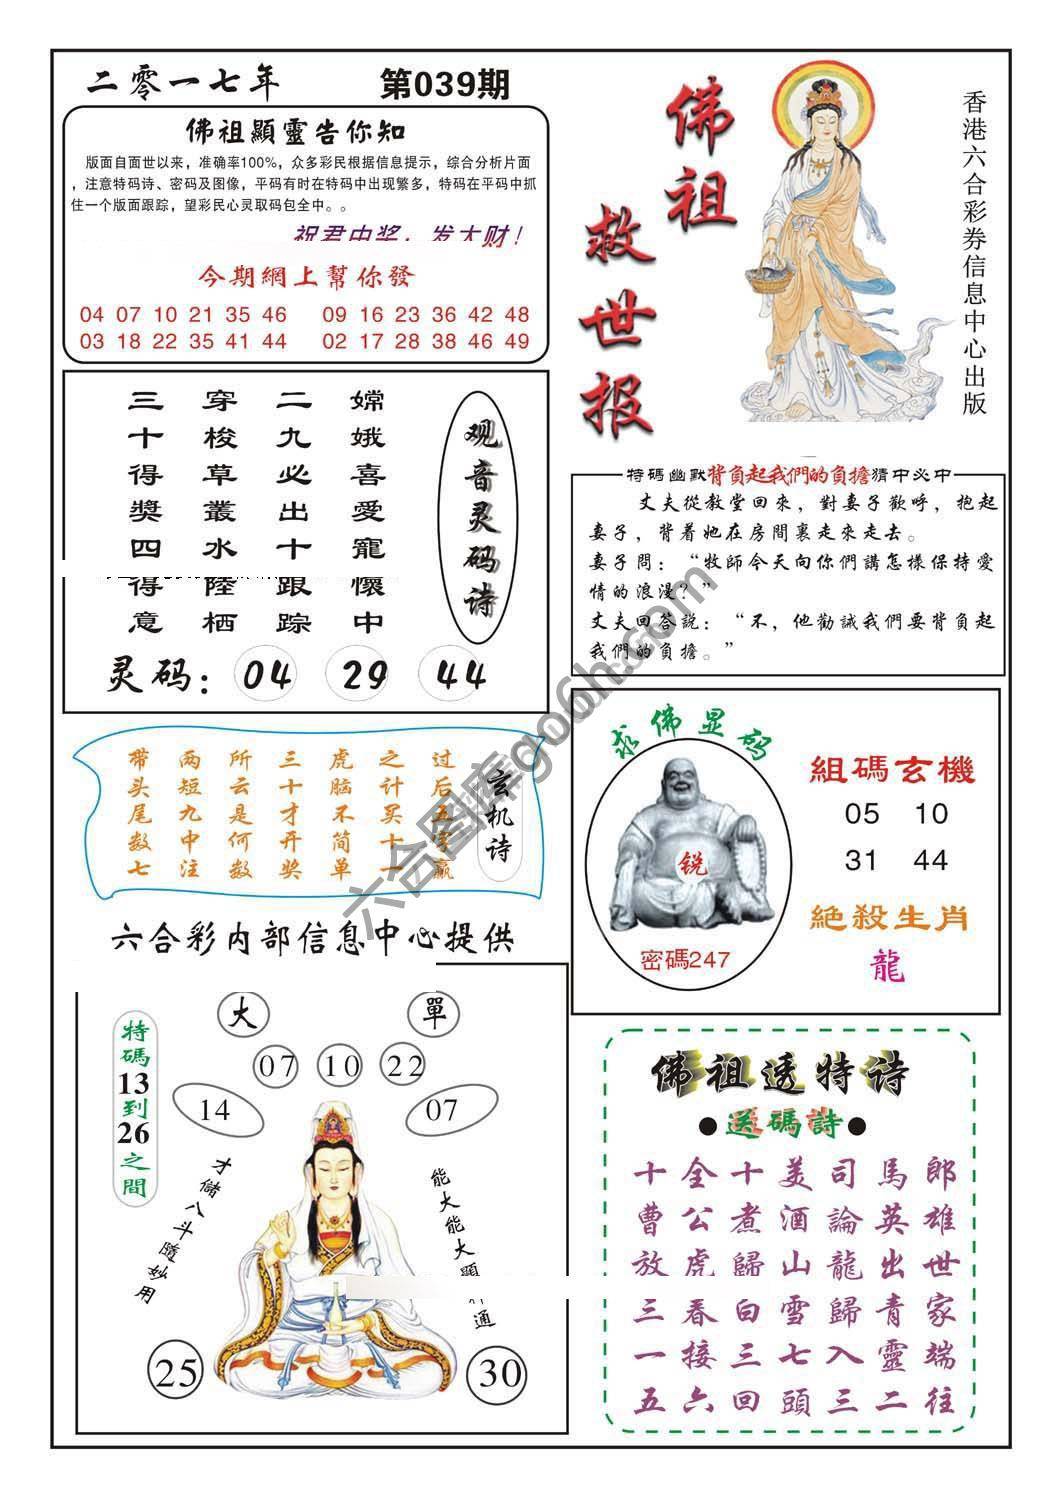 二零一七年 第039期
佛祖顯靈告你知
版面自面世以来，准确率100%，众多彩民根据信息提示，综合分析片面
，注意特码诗、密码及图像，平码有时在特码中出现繁多，特码在平码中抓
住一个版面跟踪，望彩民心灵取码包全中。。
祝君中奖，发大财！
今期網上幫你發
04 07 10 21 35 46 09 16 23 36 42 48
03 18 22 35 41 44 02 17 28 38 46 49
佛祖
救世报
香港六合彩券信息中心出版
观音灵码诗
嫦娥喜愛寵懷中
二九必出十跟踪
穿梭草叢水陸栖
三十得獎四得意
灵码：04 29 44
特碼幽默背負起我們的負擔猜中必中
丈夫從教堂回來，對妻子歡呼，抱起
妻子，背着她在房間裏走來走去。
妻子問：“牧師今天向你們講怎樣保持愛
情的浪漫？”
丈夫回答説：“不，他勸誡我們要背負起
我們的負擔。”
玄机诗
过后五字赢
之计买十一
虎脑不简单
三十才开奖
所云是何数
两短九中注
带头尾数七
求佛显码
锐
密碼247
組碼玄機
05 10
31 44
絕殺生肖
龍
六合彩内部信息中心提供
大 單
07 10 22
14 07
特碼13到26之間
才儲八斗隨妙用
能大能大顯 通
25 30
佛祖透特诗
●送碼詩●
十全十美司馬郎
曹公煮酒論英雄
放虎歸山龍出世
三春白雪歸青家
一接三七入靈端
五六回頭三二往
六合图库go6h.com